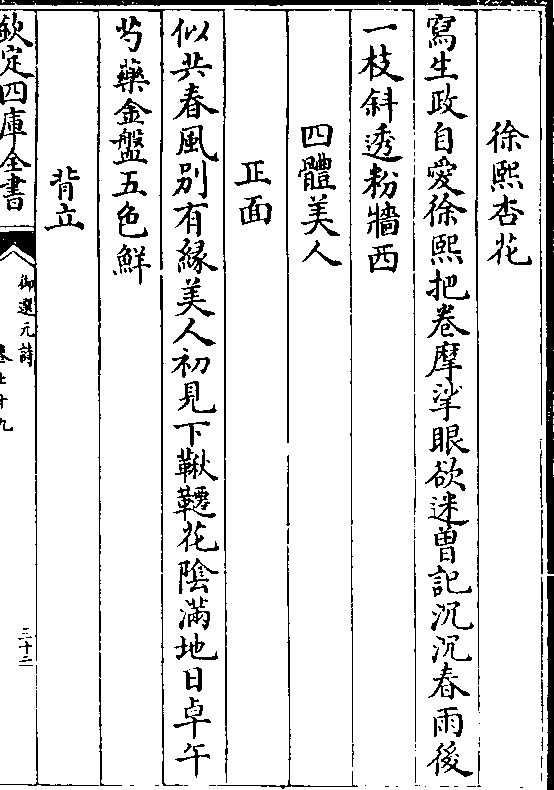 徐熙杏花
寫生政自愛徐熙把卷摩挲眼欲迷曽記沉沉春雨後
一枝斜透粉牆西
四體美人
正面
似共春風别有縁美人初見下鞦韆花陰滿地日卓午
芍藥金盤五色鮮
背立
欽定四庫全書
御選元詩
卷七十九
三十二